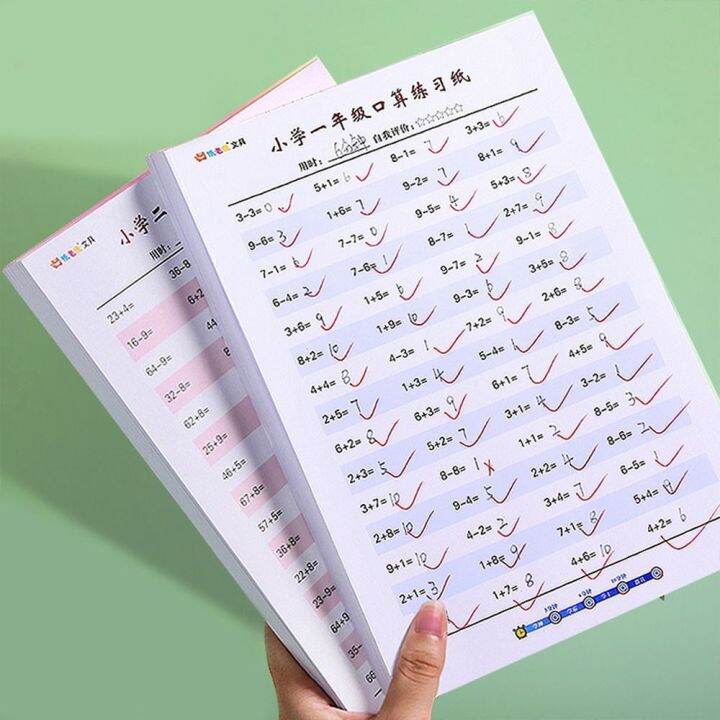 陈老师文具
小学一年级口算练习纸
用时: 6分钟 自我评价:☆☆☆☆☆
3-3=0 5+1=6 8-1=7 3+3=6
9-6=3 1+6=7 9-2=7 8+1=9
7-1=6 7-7=0 9-5=4 5+3=8
6-4=2 7-6=1 8-7=1 2+7=9
3+6=9 1+5=6 9-7=2 9-1=8
8+2=10 1+9=10 9-3=6 3+5=8
4+4=8 4-3=1 7+2=9 2+6=8
2+5=7 1+3=4 5-4=1 8-3=5
6+2=8 6+3=9 6+1=7 4+5=9
2+3=5 5+2=7 3+1=4 3-2=1
3+7=10 8-8=1 1+1=2 8-5=3
2+8=10 9-4=5 2+2=4 8-6=2
9+1=10 4-2=2 3+4=7 6-5=1
2+1=3 1+8=9 7+1=8 5+4=
1+7=8 4+6=10 4+2=6
陈老师文具
小学二
用时:
23+4= 36-8
16-9= 6+2
64-9= 44
32-8= 8
62+8=
25+9=
46+5=
67+8=
57+5=
36+8=
22+8=
23-9=
64+9
35-
66